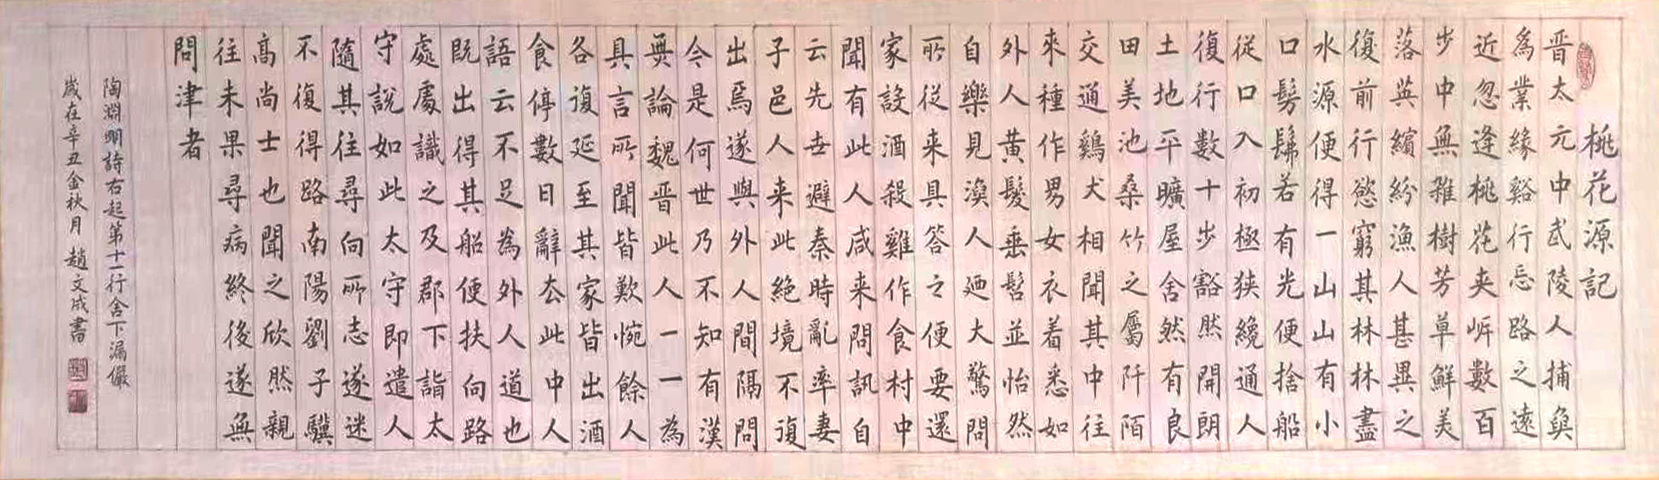 桃花源記
晋太元中武陵人捕魚
為業緣谿行忘路之遠
近忽逢桃花夹岸數百
步中無雜樹芳草鮮美
落英繽紛漁人甚異之
復前行慾窮其林林盡
水源便得一山山有小
口髣髴若有光便捨船
從口入初極狹纔通人
復行數十步豁然開朗
土地平曠屋舍然有良
田美池桑竹之屬阡陌
交通鷄犬相聞其中往
來種作男女衣着悉如
外人黃髮垂髫並怡然
自樂見漁人廼大驚問
所從来具答之便要還
家設酒殺雞作食村中
聞有此人咸来問訊自
云先世避秦時亂率妻
子邑人来此絶境不復
出焉遂與外人間隔問
今是何世乃不知有漢
無論魏晋此人一一為
具言所聞皆歎惋餘人
各復延至其家皆出酒
食停數日辭去此中人
語云不足為外人道也
既出得其船便扶向路
處處識之及郡下詣太
守說如此太守即遣人
隨其往尋向所志遂迷
不復得路南陽劉子驥
高尚士也聞之欣然親
往未果尋病終後遂無
問津者
陶淵明詩右起第十一行舍下漏儼
歲在辛丑金秋月 趙文成書